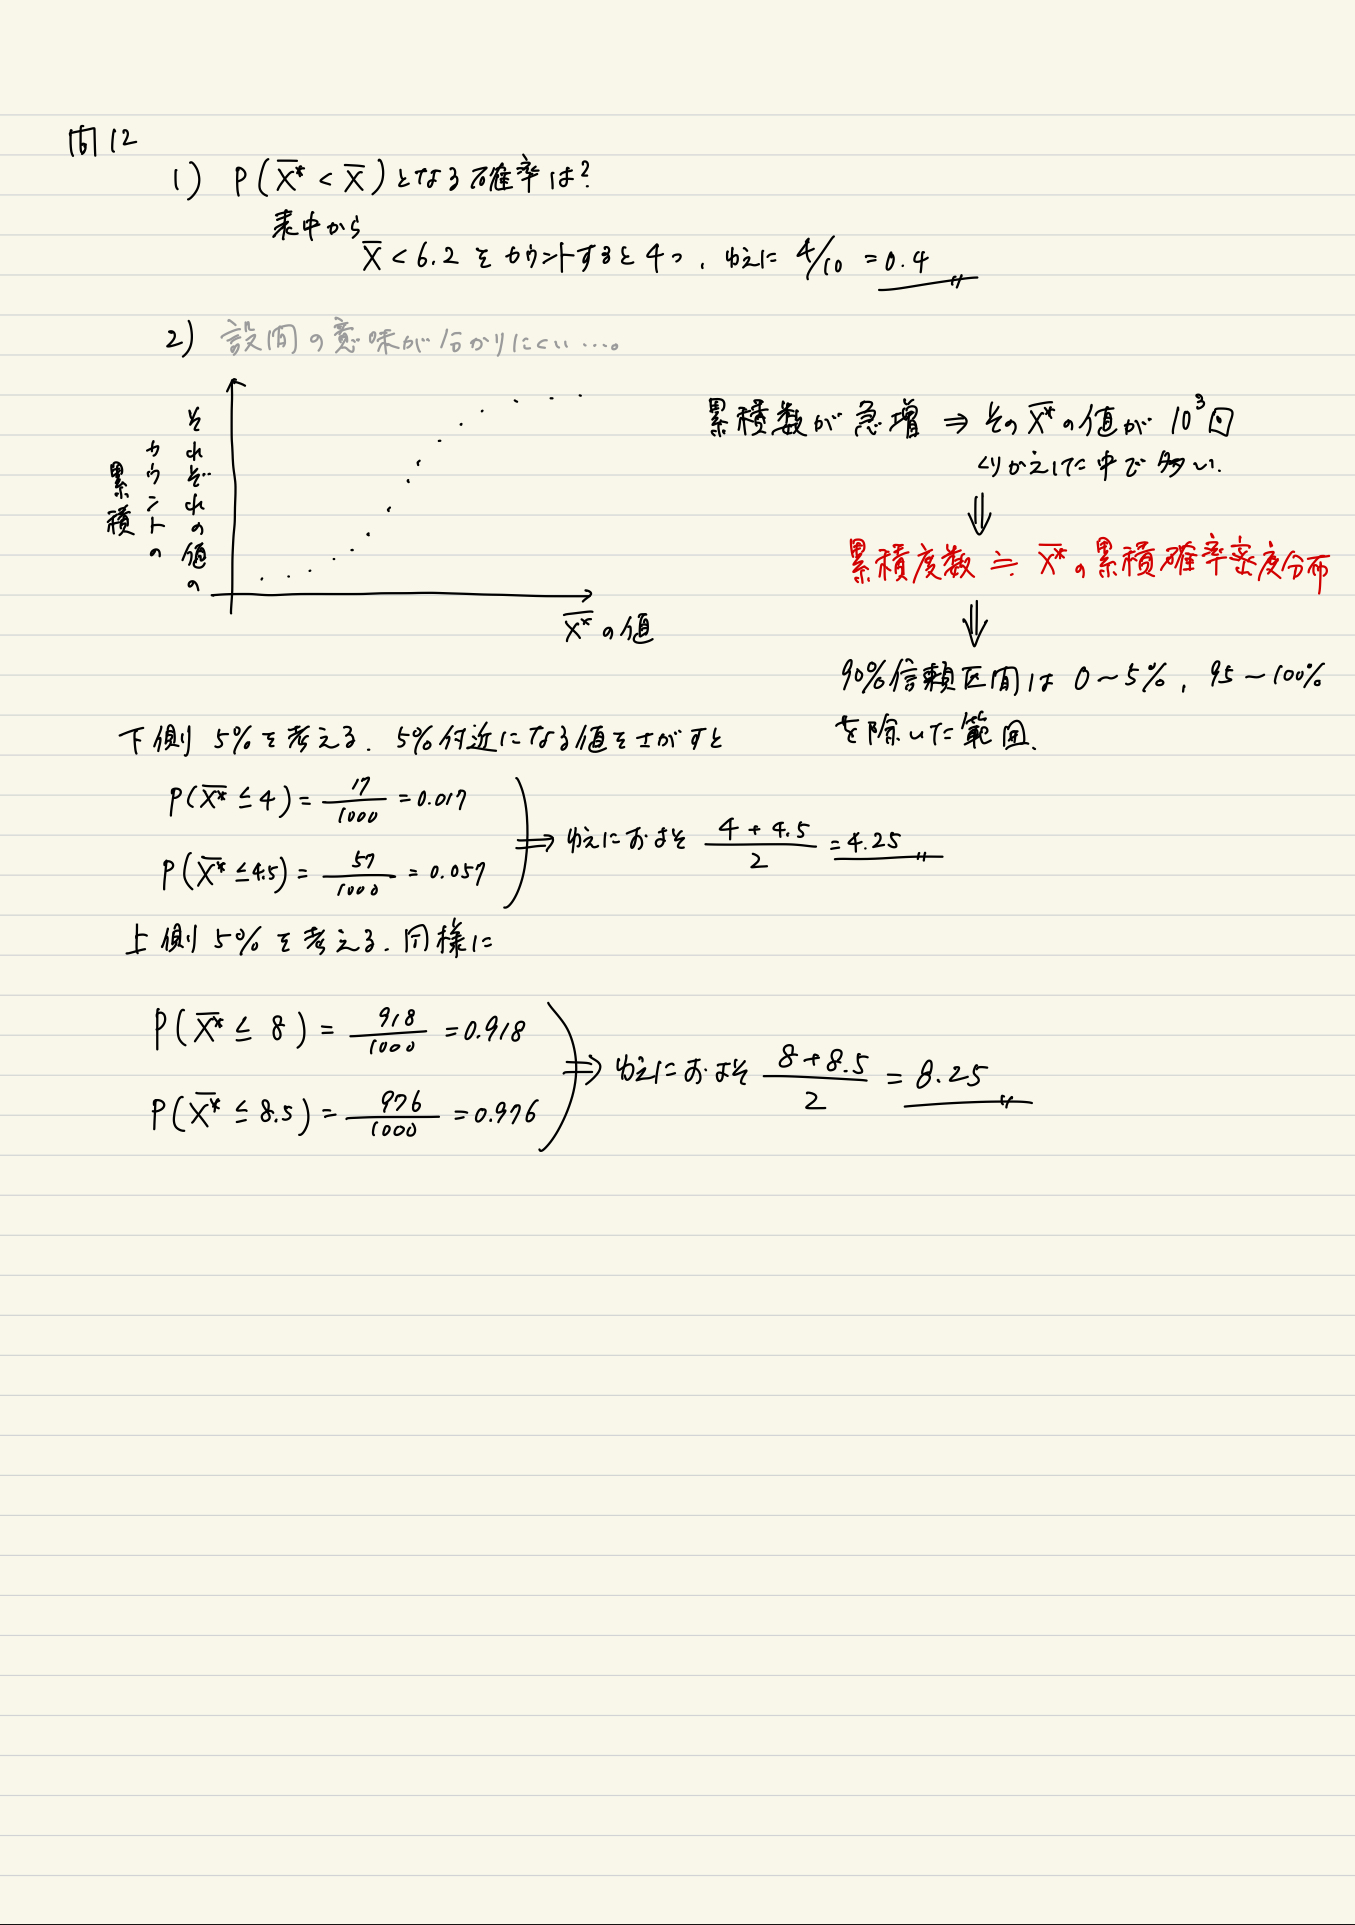 問12
1) P(X̄* < X̄)となる確率は?
表中から
X̄ < 6.2 をカウントすると4つ、ゆえに 4/10 = 0.4
2) 設問の意味が分かりにくい…。
それぞれの値の
カウントの
累積
X̄*の値
累積数が急増 ⇒ そのX̄*の値が10³回
くりかえした中で多い.
⇓
累積度数 ≒ X̄*の累積確率密度分布
⇓
90%信頼区間は 0~5%, 95~100%
を除いた範囲.
下側5%を考える. 5%付近になる値をさがすと
P(X̄* ≤ 4) = 17/1000 = 0.017
P(X̄* ≤ 4.5) = 57/1000 = 0.057
⇒ ゆえにおよそ (4 + 4.5)/2 = 4.25
上側5%を考える. 同様に
P(X̄* ≤ 8) = 918/1000 = 0.918
P(X̄* ≤ 8.5) = 976/1000 = 0.976
⇒ ゆえにおよそ (8 + 8.5)/2 = 8.25